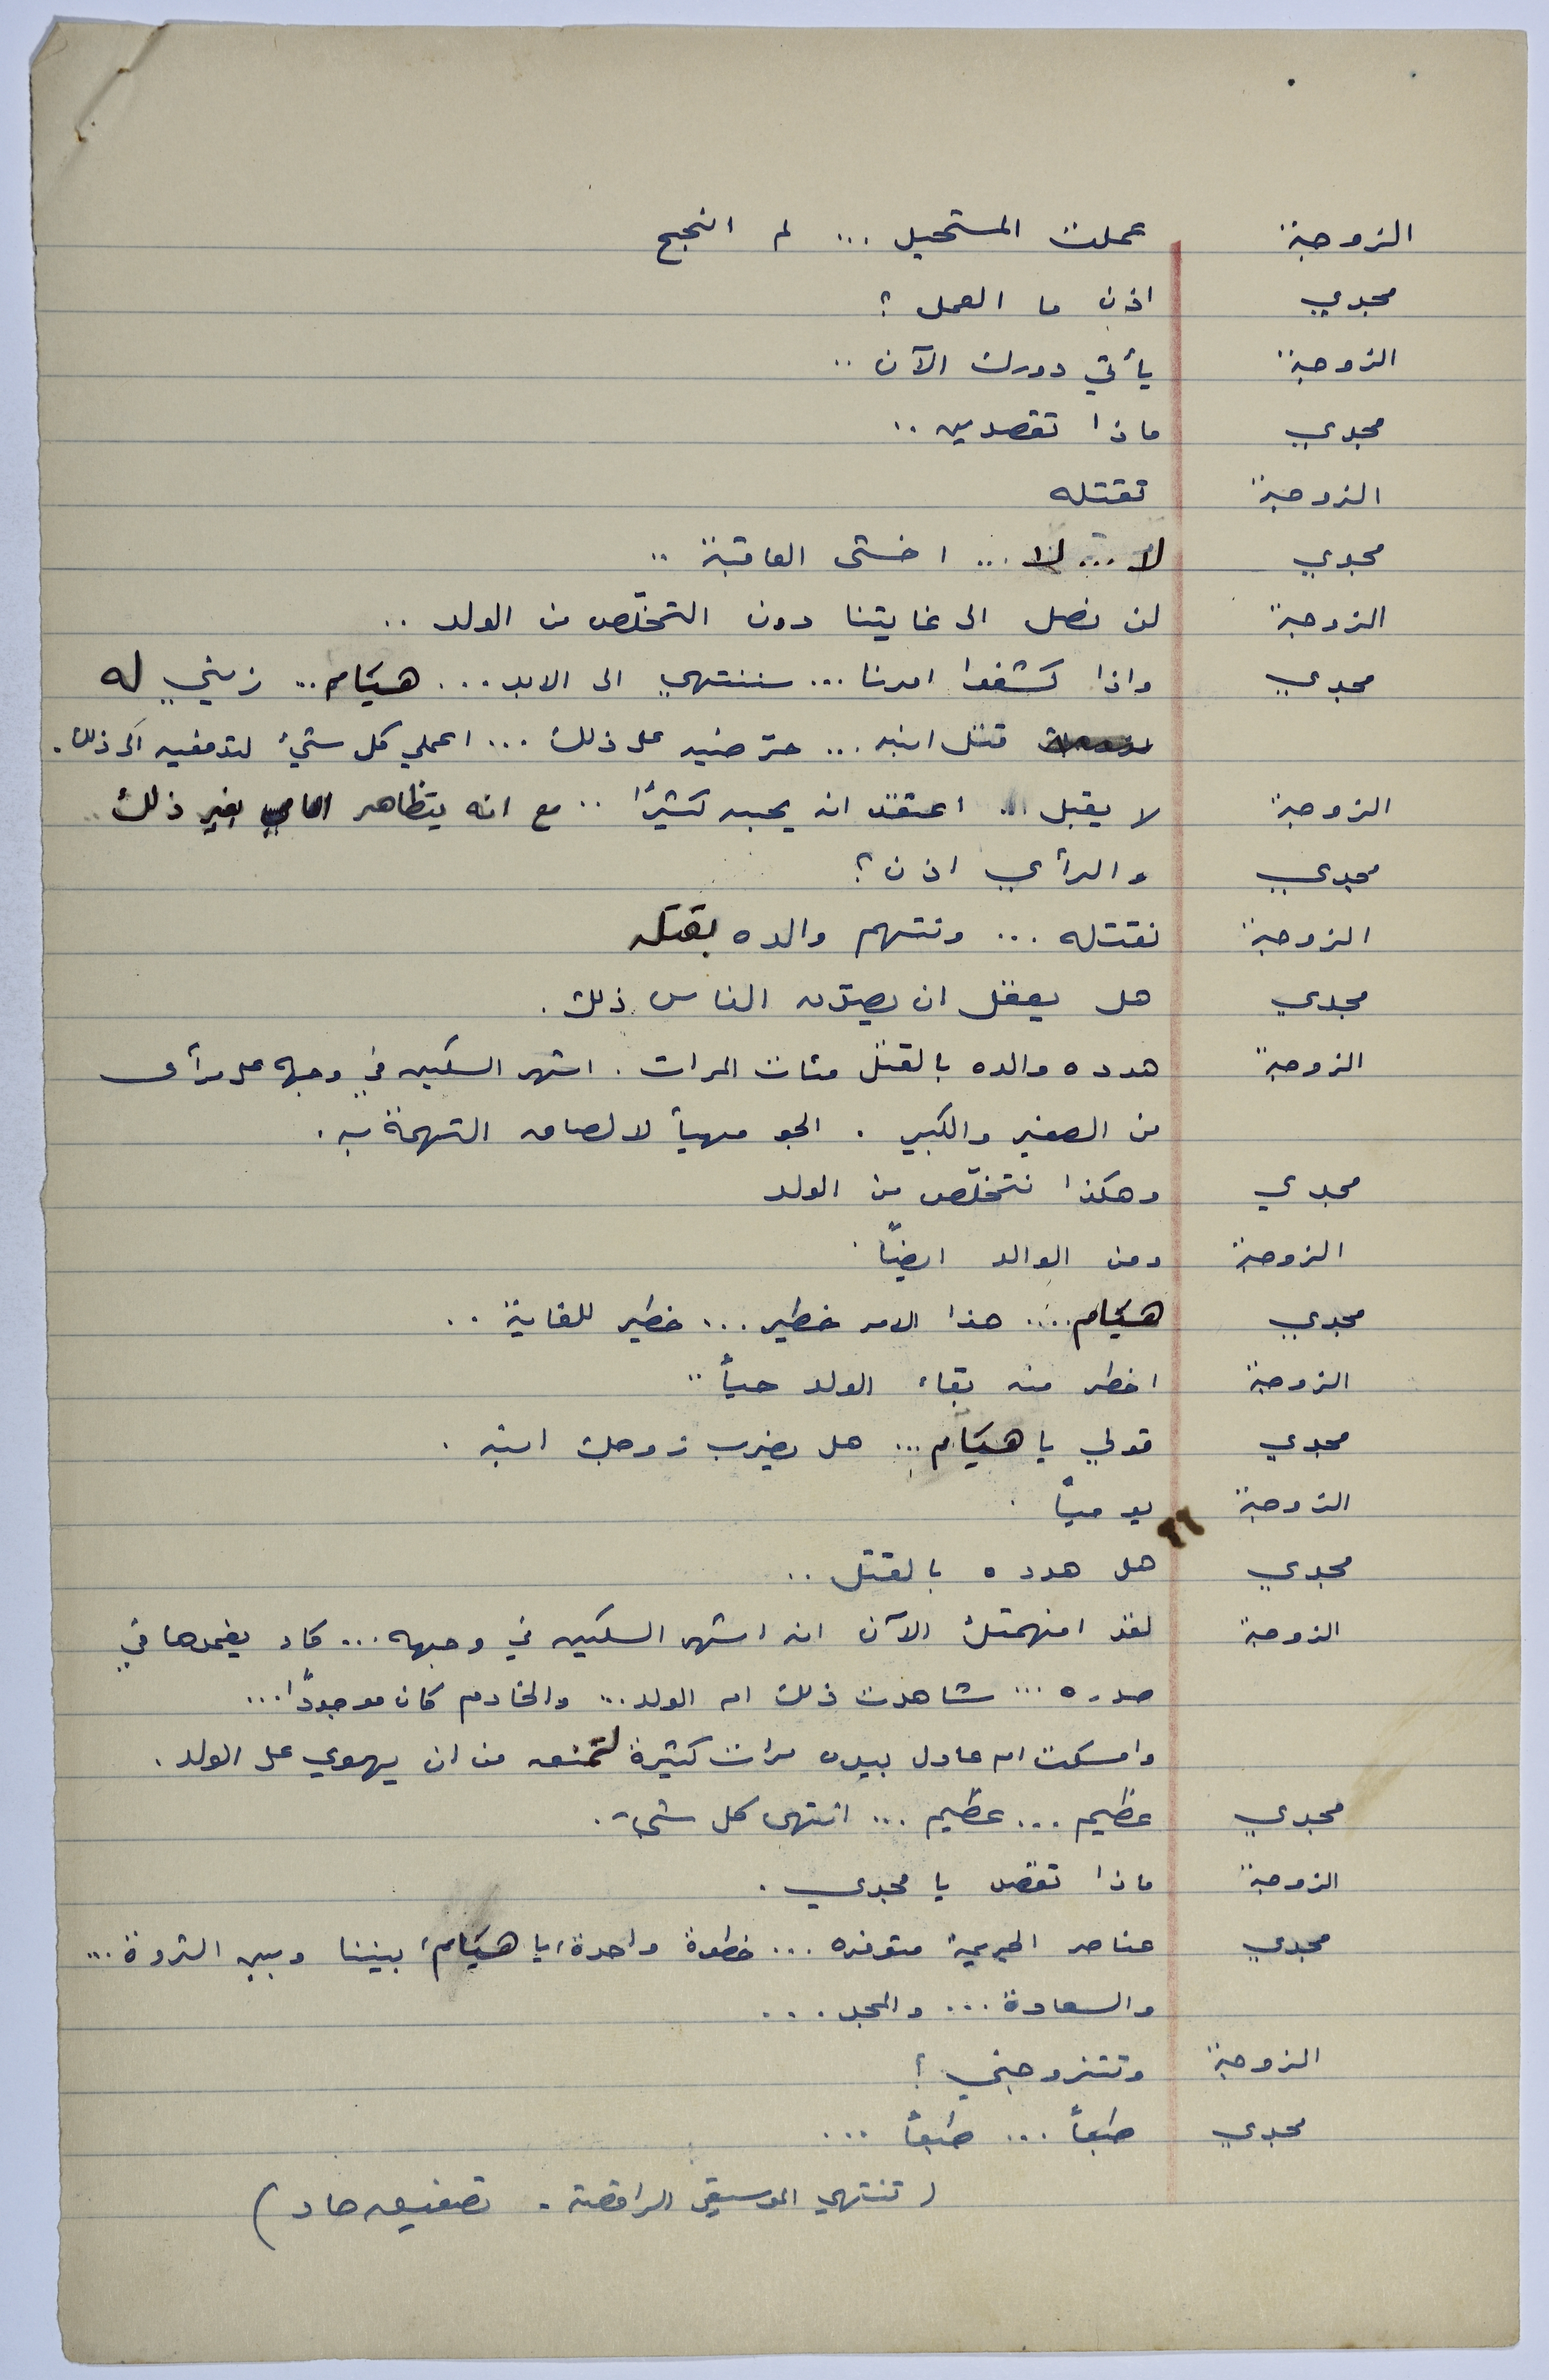 الزوجة عملت المستحيل ... لم انجح
مجدي اذن ما العمل ؟
الزوجة يأتي دورك الآن ..
مجدي ماذا تقصدين ..
الزوجة تقتله
مجدي لا ... لا ... اخشى العاقبة ..
الزوجة لن نصل الى غايتنا دون التخلّص من الولد ..
مجدي واذا كشفوا امرنا ... سننتهي الى الابد ... هيَام .. زيني له
قتل ابنه ... حرّضيه على ذلك ... اعملي كل شيء لتدفعيه الى ذلك .
الزوجة لا يقبل ... اعتقد انه يحبه كثيرًا .. مع انه يتظاهر امامي بغير ذلك ..
مجدي والرأي اذن ؟
الزوجة نقتله ... ونتهم والده بقتله
مجدي هل يعقل ان يصدّق الناس ذلك .
الزوجة هدده والده بالقتل مئات المرات . اشهر السكين في وجهه على مرأى
من الصغير والكبير . الجو مهيأ لالصاق التهمة به .
مجدي وهكذا نتخلّص من الولد
الزوجة ومن الوالد ايضًا .
مجدي هيَام .... هذا الامر خطير ... خطير للغاية ..
الزوجة اخطر منه بقاء الولد حيًا ..
مجدي قولي يا هيَام ... هل يضرب زوجك ابنه .
الزوجة يوميًا .
مجدي هل هدده بالقتل ..
الزوجة لقد افهمتك الآن انه اشهر السكين في وجهه ... كاد يغمدها في
صدره ... شاهدت ذلك ام الولد ... والخادم كان موجودًا ...
وامسكت ام عادل بيده مرات كثيرة لتمنعه من ان يهوي على الولد .
مجدي عظيم ... عظيم ... انتهى كل شيء .
الزوجة ماذا تقصد يا مجدي .
مجدي عناصر الجريمة متوفره ... خطوة واحدة يا هيَام بيننا وبين الثروة ...
والسعادة ... والمجد ...
الزوجة وتتزوجني ؟
مجدي طبعًا ... طبعًا ...
( تنتهي الموسيقى الراقصة . تصفيق حاد )